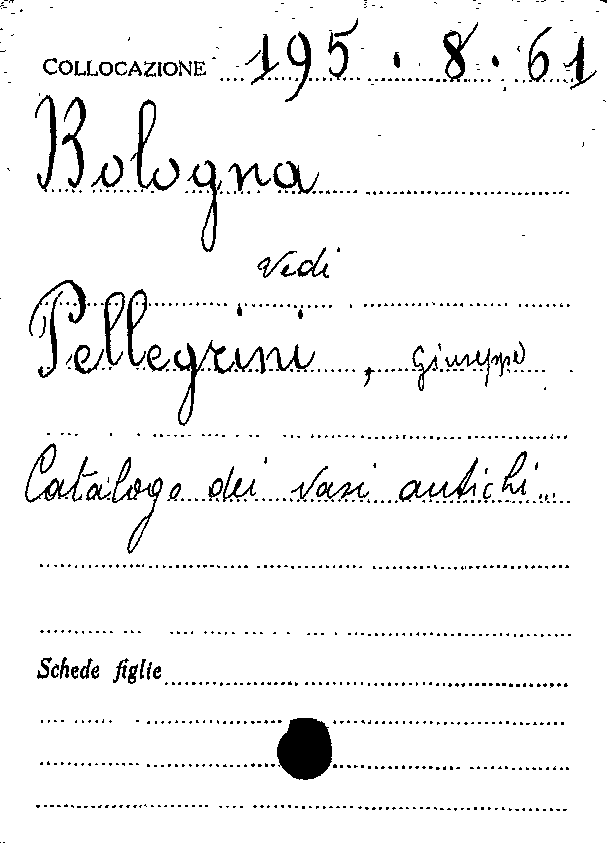 COLLOCAZIONE 195.8.61
Bologna
Vedi
Pellegrini, Giuseppe
Catalogo dei vasi antichi...
Schede figlie